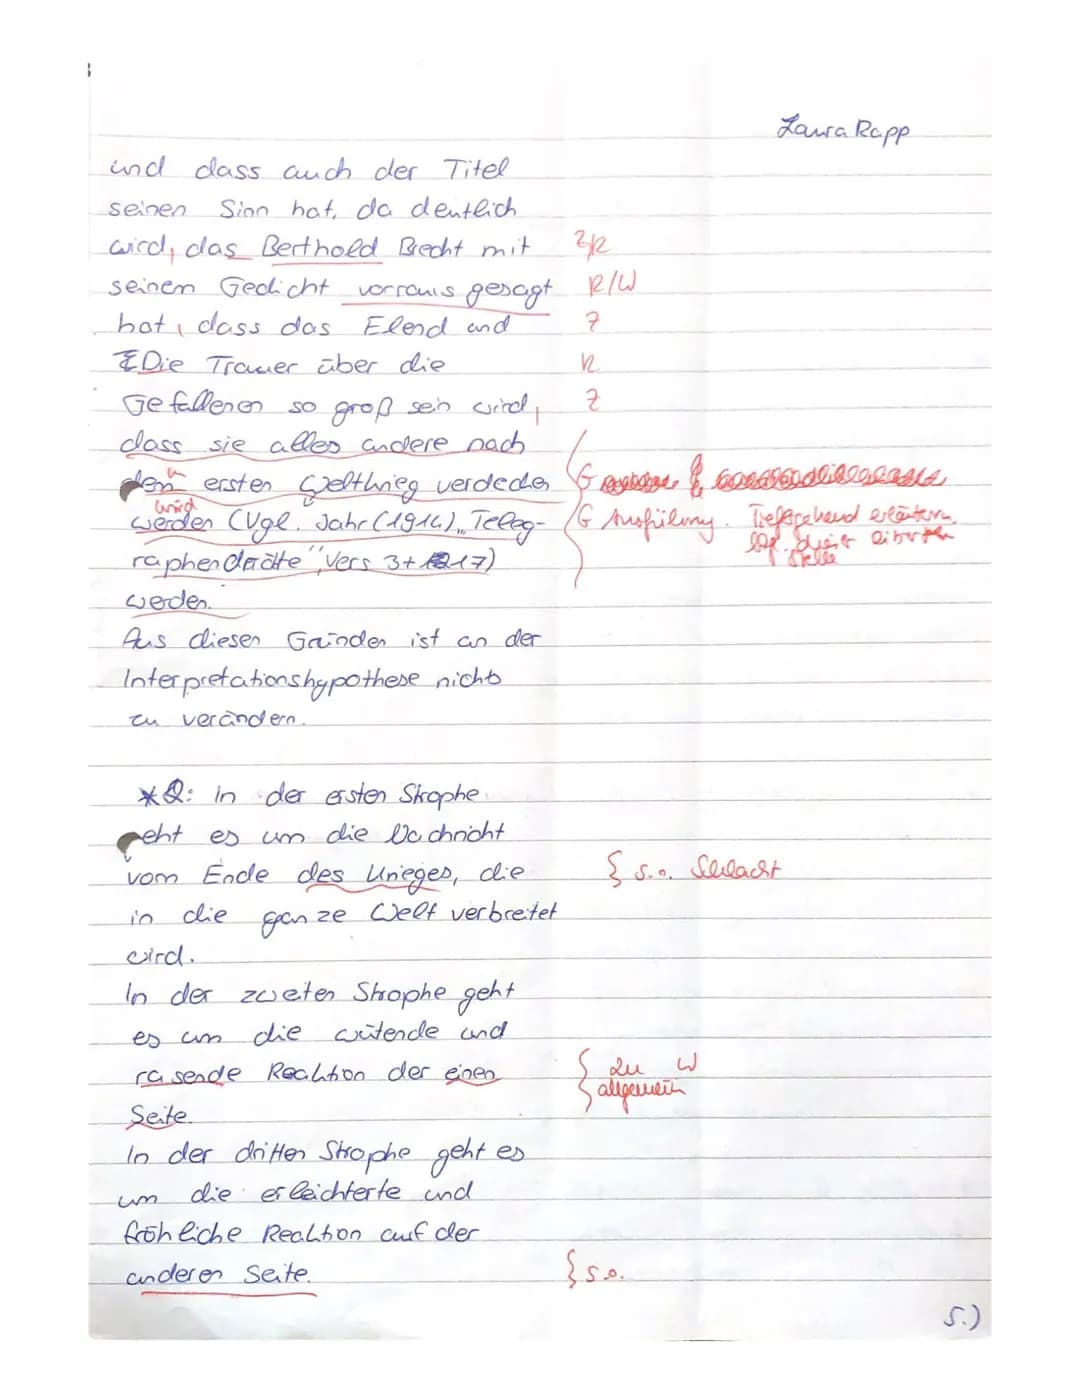 Laura Rapp
und dass auch der Titel
seinen Sinn hat, da deutlich
wird, das Berthold Brecht mit Z/R
seinem Gedicht vorraus gesagt R/W
hat, dass das Elend und Z
Die Trauer über die R
Gefallenen so groß sein wird, Z
dass sie alles andere nach
den ersten Weltkrieg verdecken G
wird
werden (Vgl. Jahr (1914), "Teleg- G Ausfülung. Tiefergehend erläutern
raphendrähte", Vers 3+17) bzgl. dieser zitierten Stelle
werden.
Aus diesen Gründen ist an der
Interpretationshypothese nichts
zu verändern.
*Q: In der ersten Strophe
geht es um die Nachricht
vom Ende des Krieges, die { s.o. Schlacht
in die ganze Welt verbreitet
wird.
In der zweiten Strophe geht
es um die wütende und
rasende Reaktion der einen { zu W
Seite. allgemein
In der dritten Strophe geht es
um die erleichterte und
fröhliche Reaktion auf der
anderen Seite. { s.o.
5.)